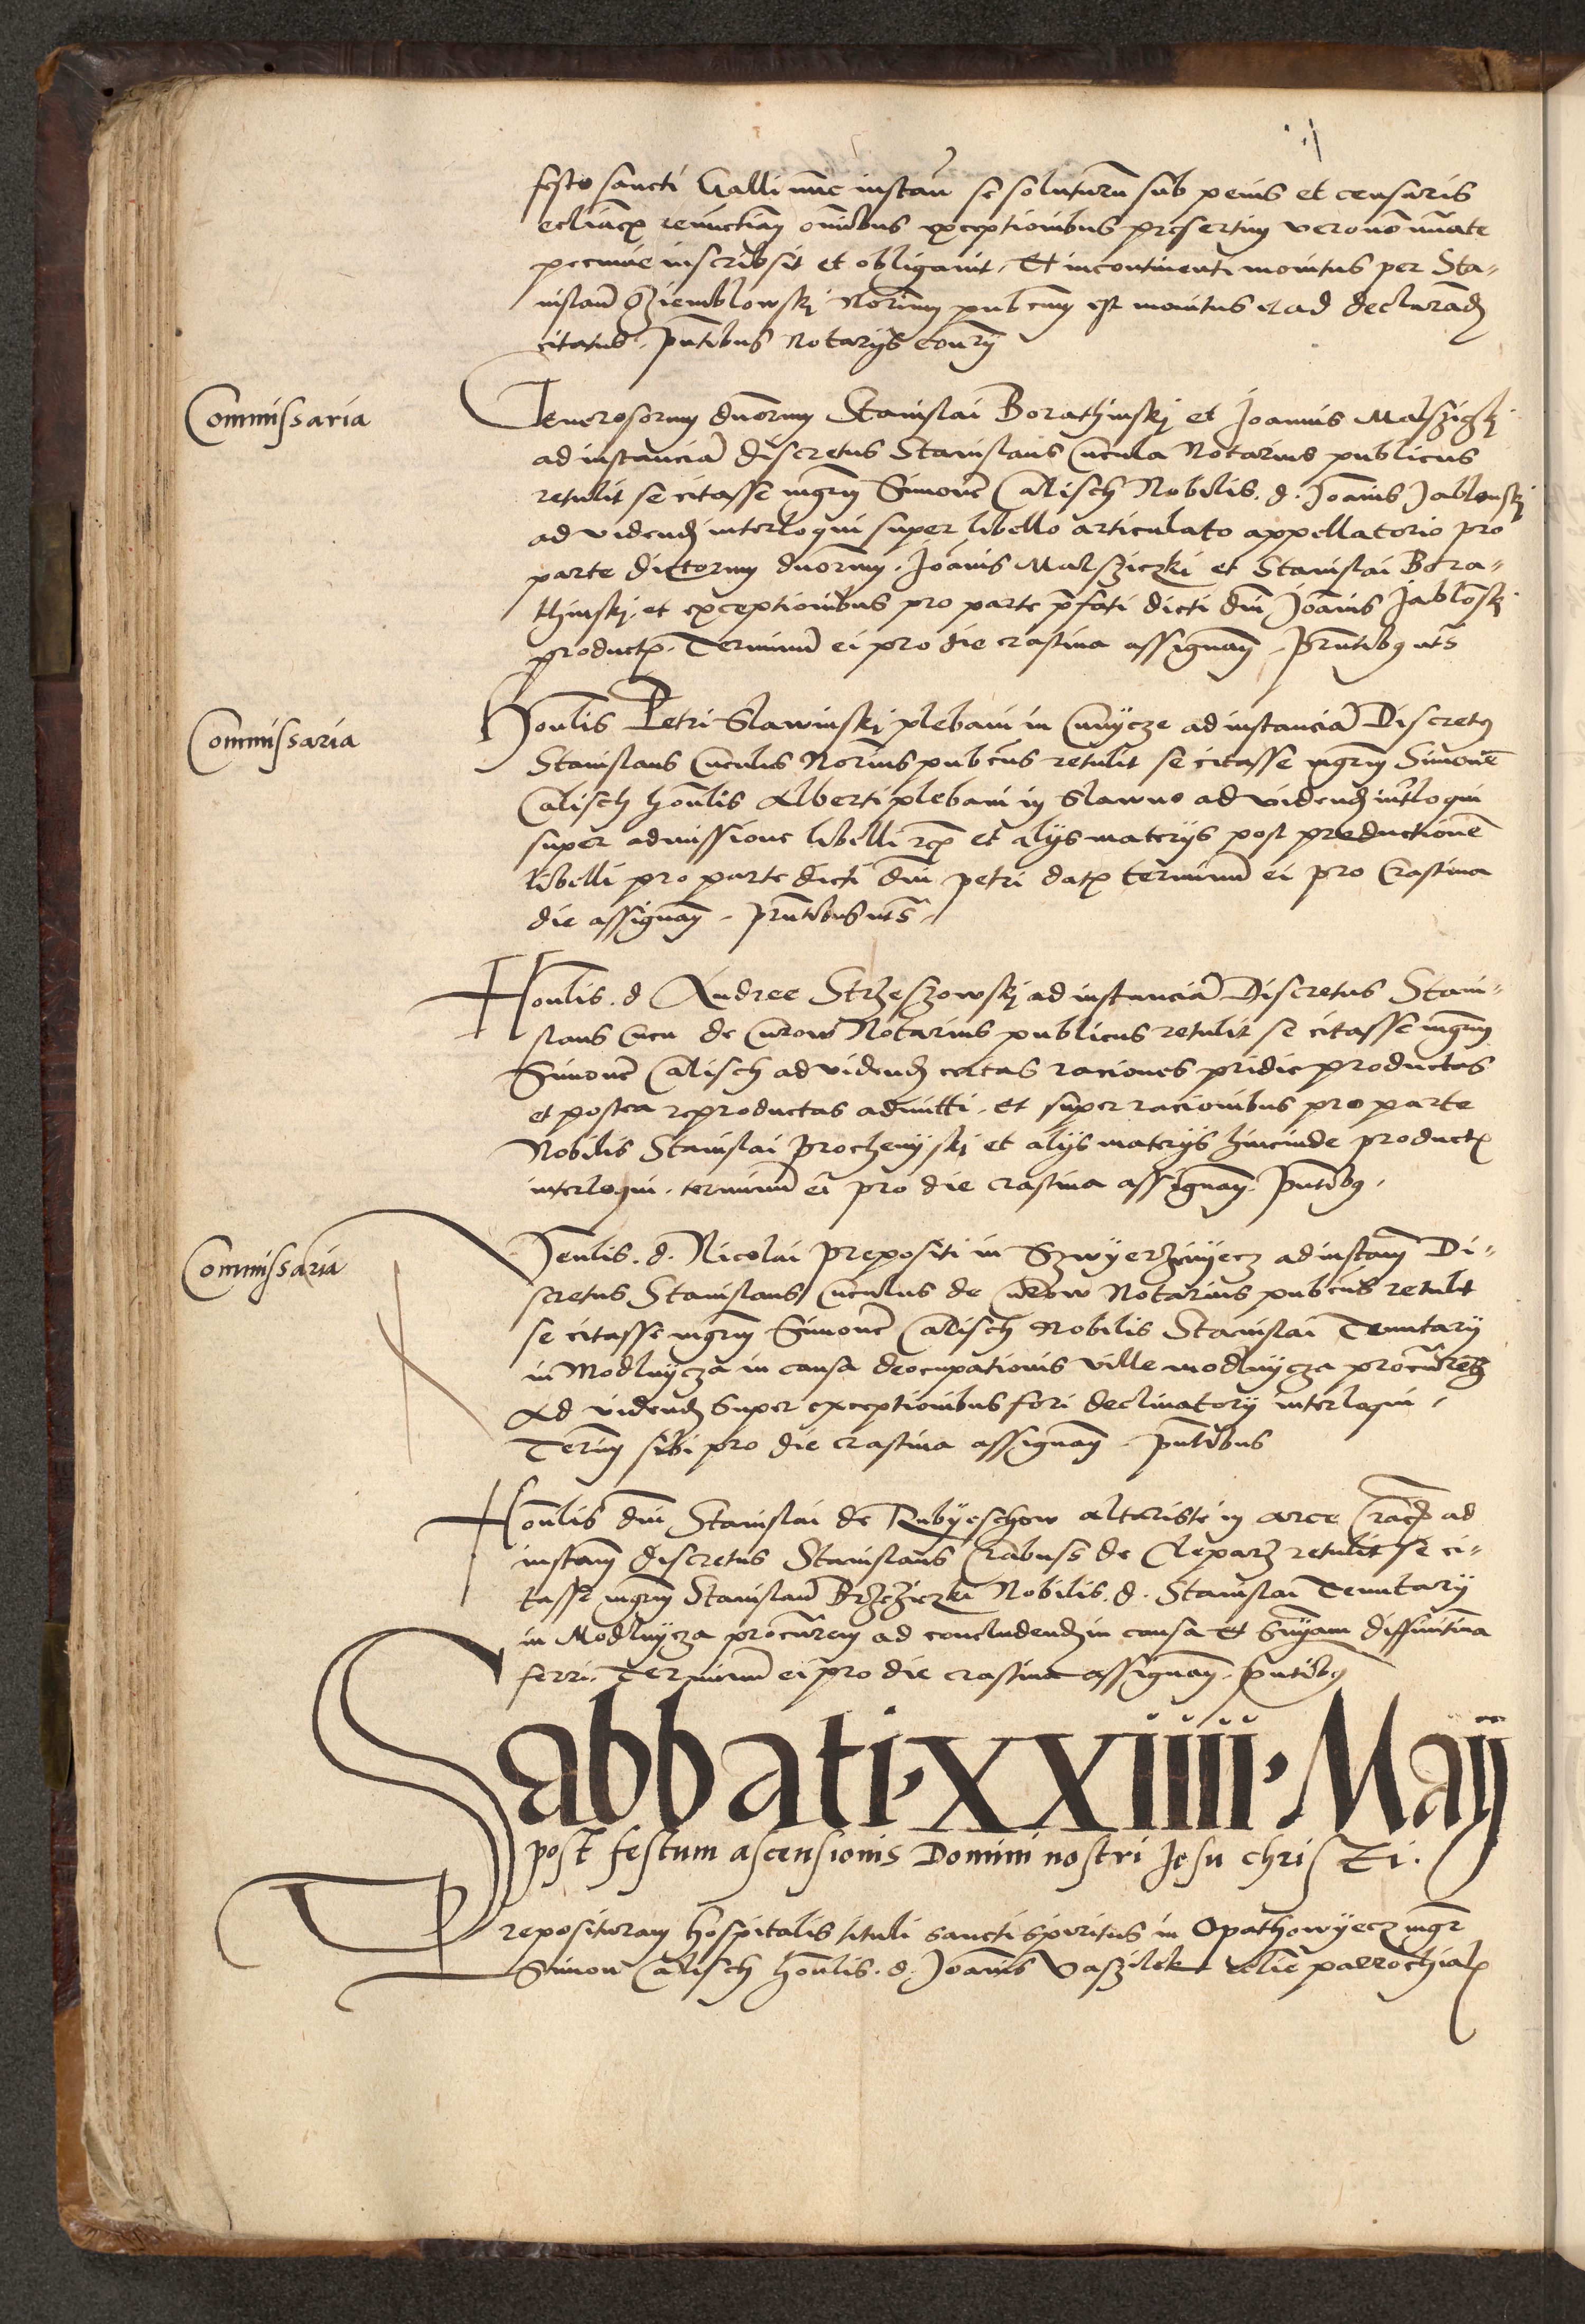 festo sancti Galli nunc instan se soluturum sub penis et censuris
ecliacis renunctian omibus exceptionibus presertim vero non nuate
pecunie inscribsit et obligavit, Et incontinenti monitus per Sta-
nislau Dziemblowskj Norium pubcum est monitus et ad declurand
citatus, pntibus Notarijs
Commissaria
Generosorum dnorum Stanislai Borathinskj et Joannis
ad instancia discretus Stanislaus Cucula Notarius publicus
retulit se citasse mgrm Simone Calisch Nobilis. d. Joanis Jablonskj
ad vidend interloqui super libello articulato appellatorio pro
parte dictorum dnorum. Joanis Malsziczki et Stanislai Bora-
thinskj, et exceptionibus pro parte pfati dicti dni Joanis Jabloskj
product. Terminu ei pro die crastina assignan. Prntibus uts
Commissaria
Honlis Petri Slawinskj plebani in ad instancia Discretus
Stanislaus Cuculus Norius pubcus retulit se citasse mgrm Simone
Calisch honlis Alberti plebani in Slawno ad vidend intloqui
super admissione libelli et alijs materijs post productione
libelli pro parte dicti dni petri dat terminu ei pro Crastina
die assignan. Prntibus uts.
Honlis. d Andree Strzeszowskj ad instancia Discretus Stani-
slaus Cucu de Curow Notarius publicus retulit se citasse mgrm
Simone Calisch ad vidend certas raciones pridie productas
et postea reproductas admitti. et super racionibus pro parte
Nobilis Stanislai et alijs materijs hincinde product
interloqui. terminu ei pro die crastina assignan. Pntibus.
Commissaria
Venlis. d. Nicolai prepositi in Szwyerzinyecz ad instam Di-
scretus Stanislaus Cuculus de Curow Notarius pubcus retulit
se citasse mgrm Simone Calisch Nobilis Stanislai Tenutarij
in Modlnycza in causa deocupationis ville modlnycza
Ad vidend super exceptionibus fori declinatorij interloqui.
Termi sibi pro die crastina assignan. Pntibus
Honlis dni Stanislai de Rubyeschow altariste in arce Crac ad
instam discretus Stanislaus Crabuss de Cleparz retulit se ci-
tasse mgrm Stanislau Brzeziczki Nobilis. d. Stanislai Tenutarij
in Modlnycza procurem ad concludend in causa et snyam diffinitiva
ferri. Terminu ei pro die crastina assignan. Pntibus
Sabbati. XXIIII. Maij
post festum ascensionis Domini nostri Jesu christi.
Prepositoram hospitalis tituli sancti spiritus in Opathowyecz mgr
Simon Calisch honlis. d. Joanis Vaszilek eclie parrochial